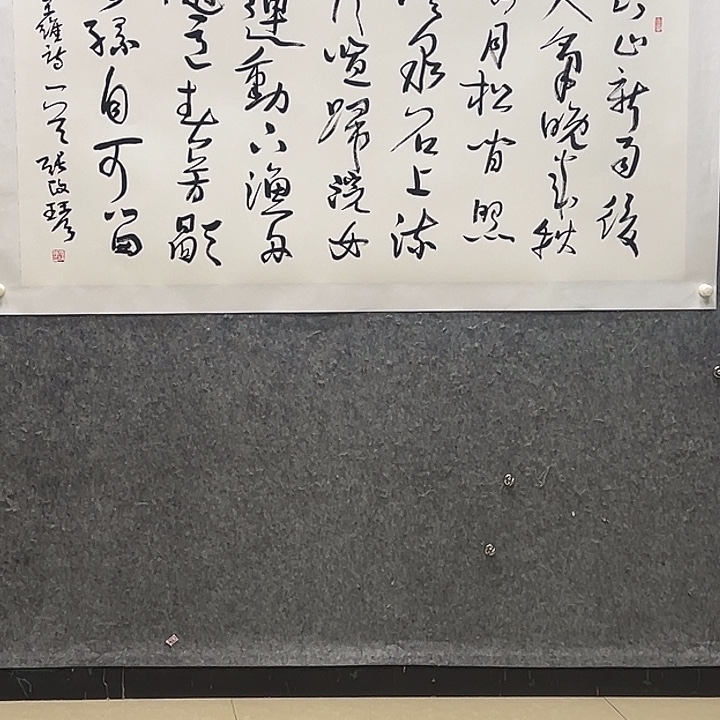 山新雨後
天氣晚來秋
月松間照
泉石上流
喧歸浣女
蓮動下漁舟
隨意春芳歇
孫自可留
王維詩一首 張改琴